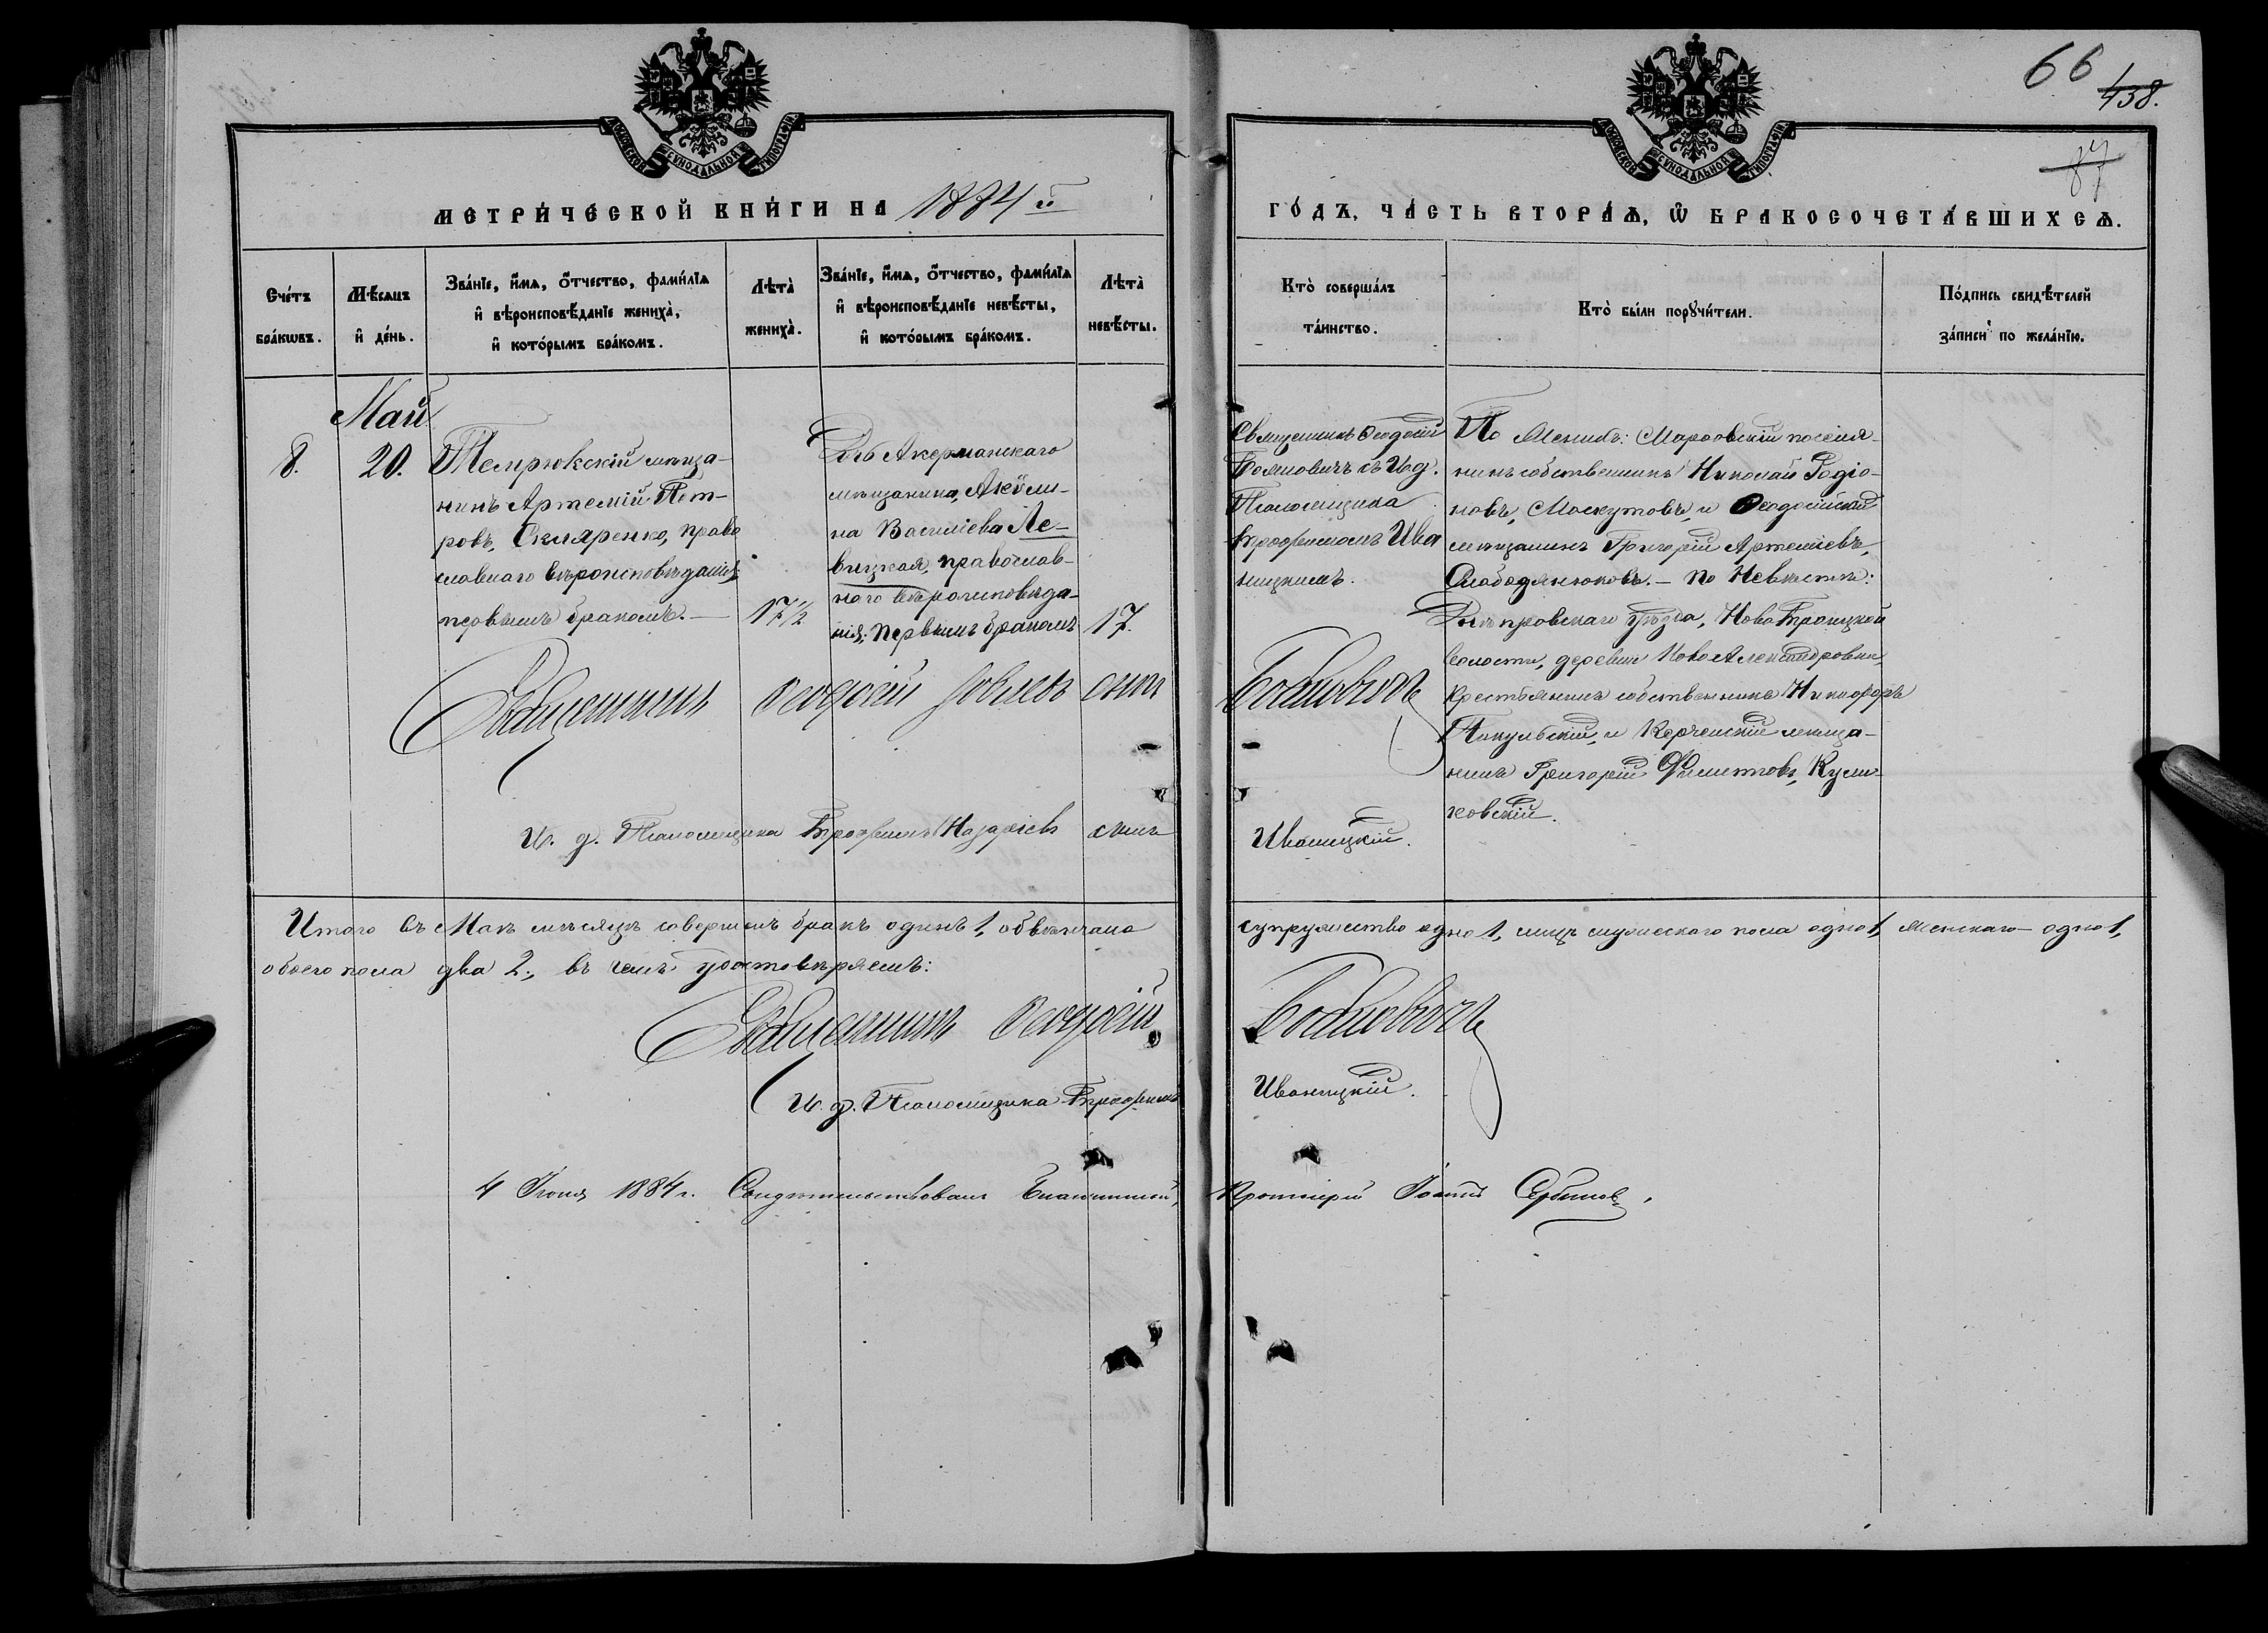 66
438.
87
МОСКОВСКОЙ СѴНОДАЛЬНОЙ ТИПОГРАФІИ
МОСКОВСКОЙ СѴНОДАЛЬНОЙ ТИПОГРАФІИ
МЕТРИ́ЧЕСКОЙ КНИ́ГИ НА 1884 й
ГО́ДЪ, ЧА́СТЬ ВТОРА́Ѧ, Ѿ БРАКОСОЧЕТА́ВШИХСѦ.
Сче́тъ
бра́кѡвъ.
Мѣ́сяцъ
и҆ де́нь.
Зва́нїе, и҆́мѧ, ѻ҆́тчество, фами́лїѧ
и҆ вѣроисповѣ́данїе жениха̀,
и҆ кото́рымъ бра́комъ.
Лѣта̀
жениха̀.
Зва́нїе, и҆́мѧ, ѻ҆́тчество, фами́лїѧ
и҆ вѣроисповѣ́данїе невѣ́сты,
и҆ кото́рымъ бра́комъ.
Лѣта̀
невѣ́сты.
Кто̀ соверша́лъ
та́инство.
Кто̀ бы́ли порꙋчи́тели.
По́дпись свидѣ́телей
за́писи по жела́нїю.
Май
8.
20.
Темрюкскій мѣща-
нинъ Артемій Пет-
ровъ, Скляренко, право
славнаго вѣроисповѣданія
первымъ бракомъ. —
17½
Дочь Акерманскаго
мѣщанина, Акули-
на Васильева Ле-
вицкая, православ-
наго вѣроисповѣда-
нія; первымъ бракомъ
17.
Священникъ Ѳеодосій
Бояновичъ съ И.д.
Псаломщика
Трофимомъ Ива
ницкимъ.
По Женихѣ: поселя-
нинъ собственникъ Николай Родіо-
новъ, Москутовъ, и Ѳеодосійскій
мѣщанинъ Григорій Артеміевъ,
Слободянюковъ. — По Невѣстѣ:
Днѣпровскаго уѣзда, НовоТроицкой
волости, деревни НовоАлександровки,
крестьянинъ собственникъ Никифоръ
Пикульскій, и Керченскій мѣща-
нинъ Григорій Кули-
ковскій.
Священникъ Ѳеодосій Іовлевъ сынъ Бояновичъ
И. д. Псаломщика Трофимъ Назаріевъ сынъ Иваницкій.
Итого въ Маѣ мѣсяцѣ совершенъ бракъ одинъ 1, обвѣнчано супружество одно 1, лицъ мужескаго пола одно 1, женскаго — одно 1,
обоего пола два 2., въ чемъ удостовѣряемъ:
Священникъ Ѳеодосій Бояновичъ
И. д. Псаломщика Трофимъ Иваницкій.
4 Іюня 1884 г. Свидѣтельствовалъ Благочинный, Протоіерей Іоаннъ Сербиновъ.